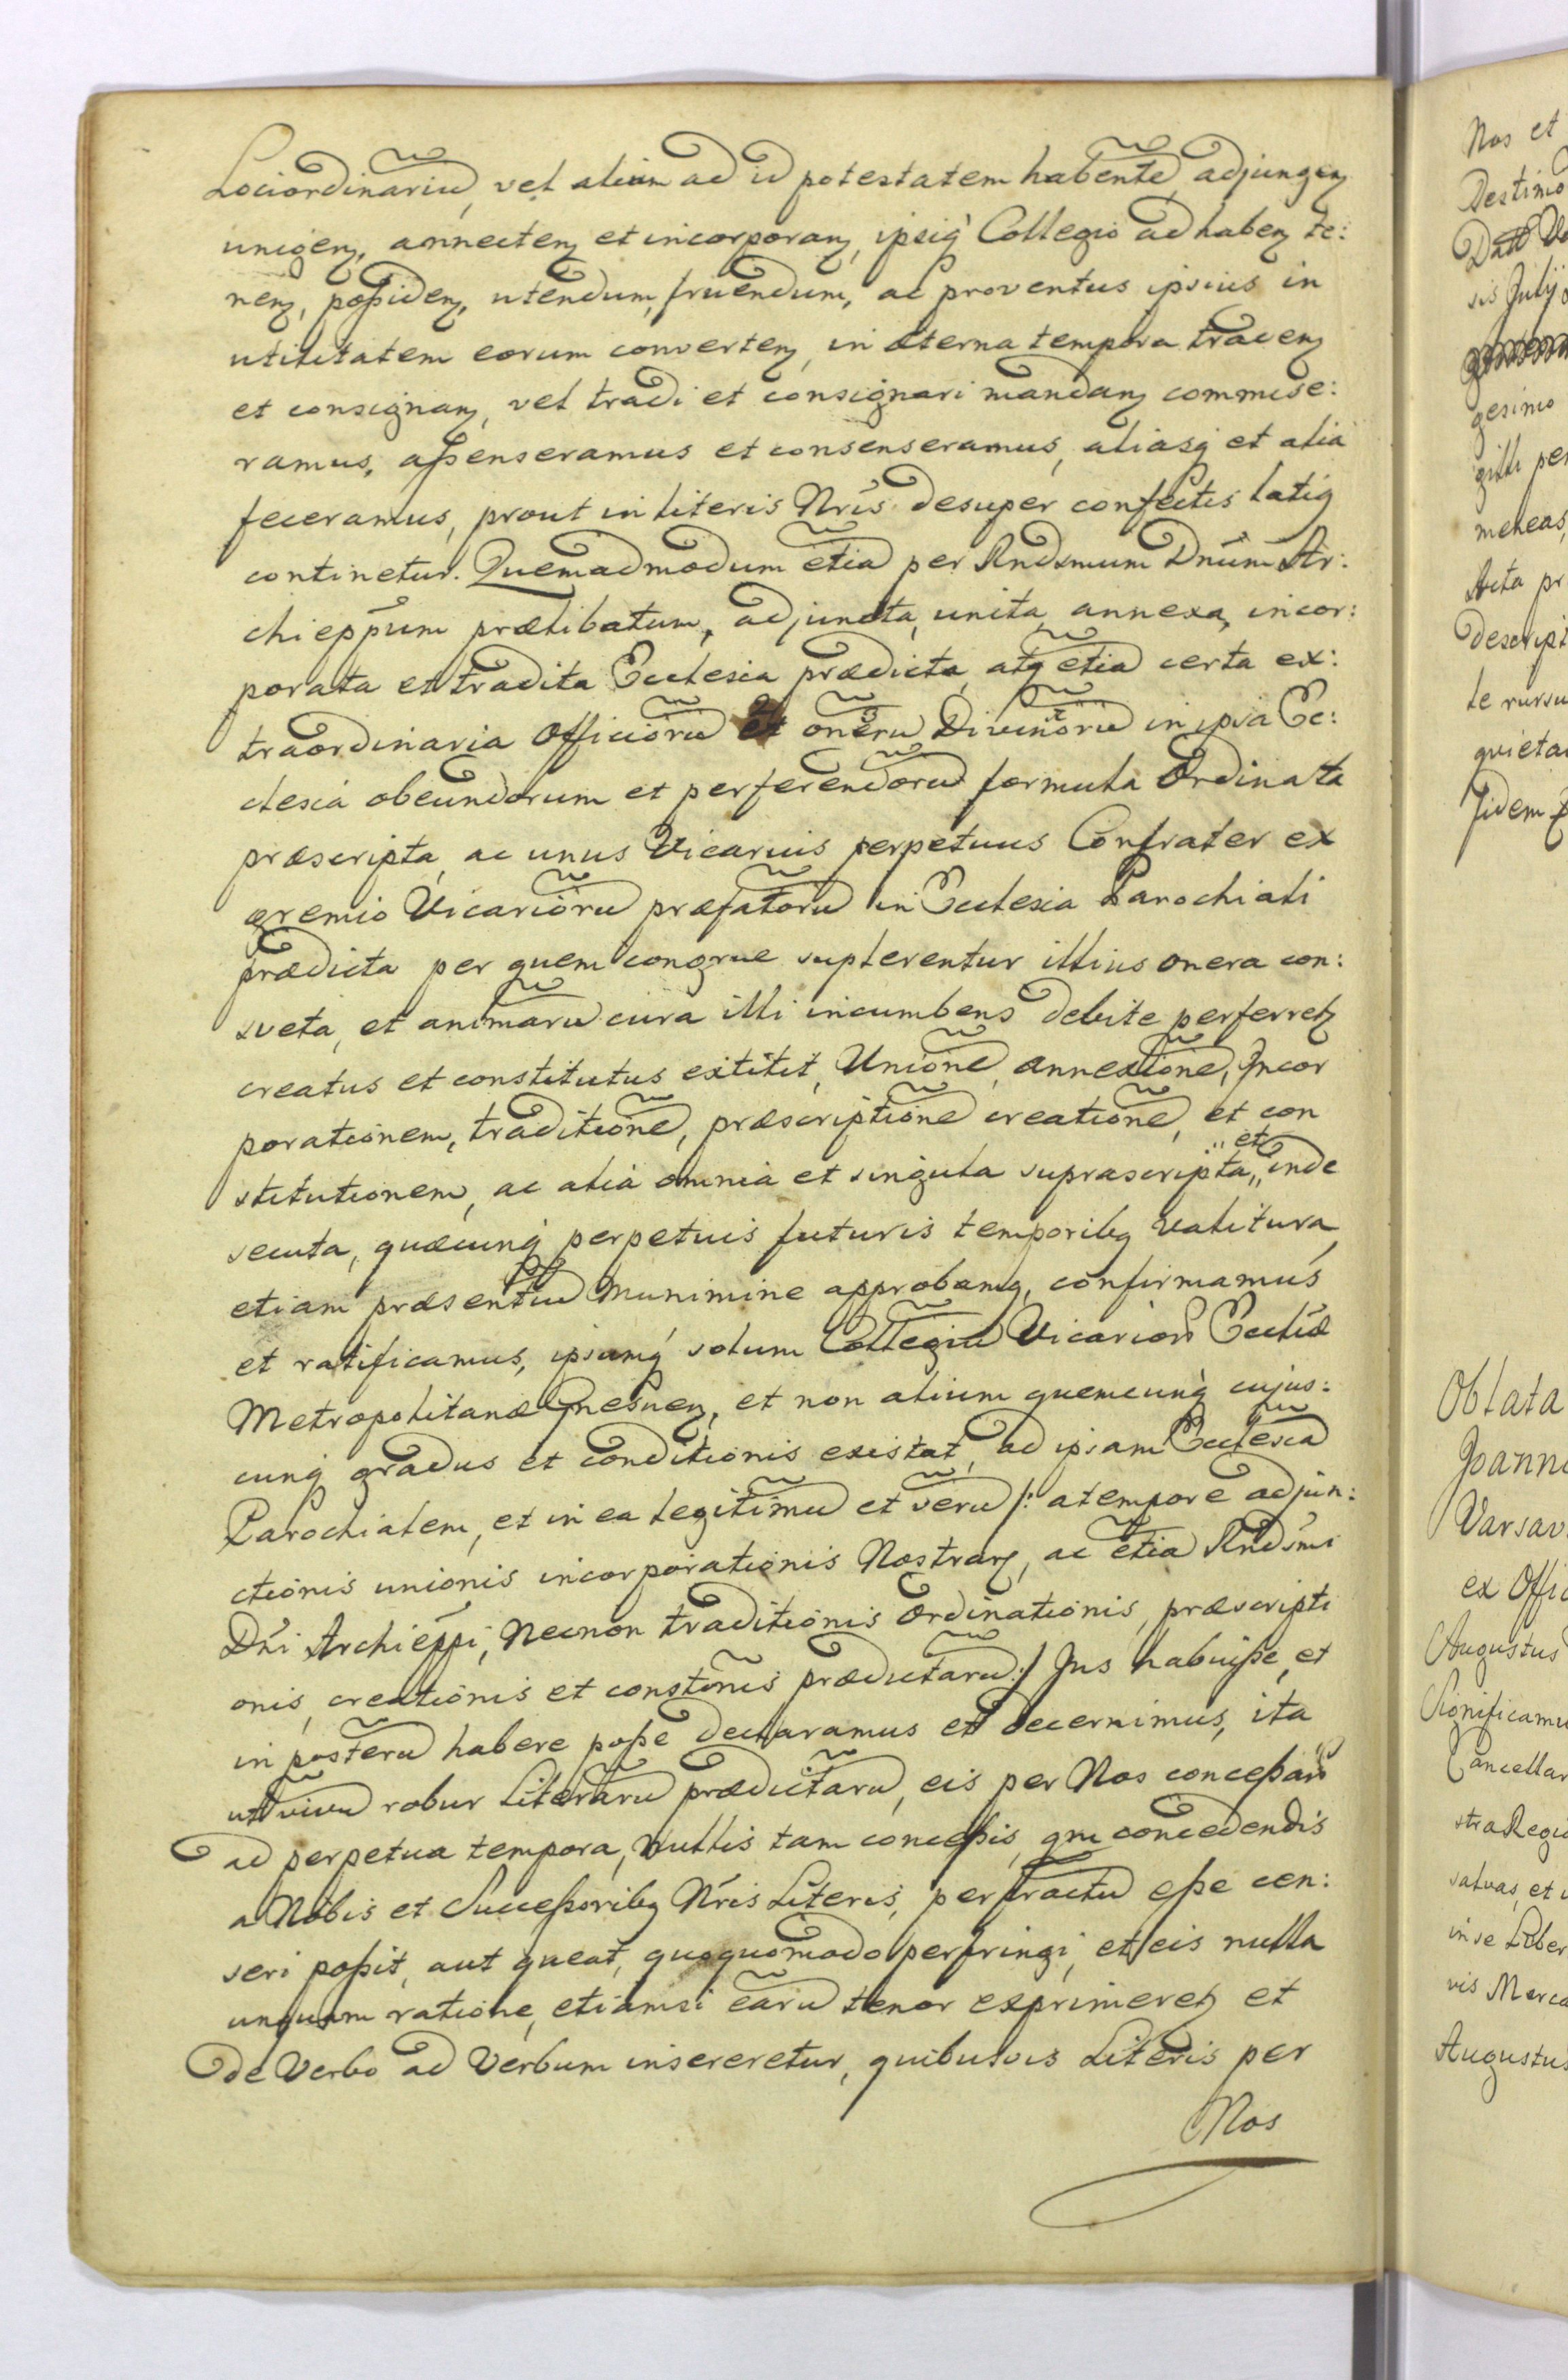 Lociordinariũ, vel alium ad id potestatem habentẽ, adjungenꝫ
unigenꝫ, annectenꝫ et incorporanꝫ, ipsiq̃ Collegio ad habenꝫ te:
nenꝫ, poßidenꝫ, utendum, fruendum, ac proventus ipsius in
utilitatem eorum convertenꝫ, in æterna tempora tradenꝫ
et consignanꝫ, vel tradi et consignari mandanꝫ commise:
ramus, aßenseramus et consenseramus, aliasq̃ et alia
feceramus, prout in literis Nrĩs desuper confectis latiꝰ
continetur. Quemadmodum etiã per Rndsmum Dnũm Ar:
chiepp̃um prælibatum, adjuncta, unita, annexa, incor:
porata et tradita Ecclesia prædicta, atqꝫ etiã certa ex:
traordinaria Officiorũ et onerũ Divinorũ in ipsa Ec:
clesia obeundorum et perferendorũ formula Ordinata
præscripta, ac unus Vicarius perpetuus Confrater ex
gremio Vicariorũ præfatorũ in Ecclesia Parochiali
prædicta per quem congrue suplerentur illius onera con:
sveta, et animarũ cura illi incumbens debite perferretꝫ
creatus et constitutus extitit, Unionẽ, annexionẽ, Incor
porationem, traditionẽ, præscriptionẽ creationẽ, et con
stitutionem, ac alia omnia et singula suprascripta, et inde
secuta, quæcunq̃ perpetuis futuris temporibꝫ valitura,
etiam præsentiũ munimine approbamꝰ, confirmamus
et ratificamus, ipsumq̃ solum Collegiũ Vicarioꝝ Ecclĩæ
Metropolitanæ Gnesnenꝫ, et non alium quemcunq̃ cujus:
cunq̃ gradus et conditionis existat, ad ipsam Ecclesiã
Parochialem, et in ea legitimũ et verũ /: a tempore adjun:
ctionis unionis incorporationis Nostraꝝ, ac etiã Rndsmi
Dnĩ Archiepp̃i, Necnon traditionis ordinationis, præscripti
onis, creationis et constõnis prædictarũ :/ Jus habuiße, et
in posterũ habere poße declaramus et decernimus, ita
ut vivũ robur Literarũ prædictarũ, eis per Nos conceßaꝝ
ad perpetua tempora, Nullis tam conceßis, qm̃ concedendis
a Nobis et Succeßoribꝫ Nrĩs Literis, perfractũ eße cen:
seri poßit, aut queat, quoquomodo perfringi, et eis nulla
unquam ratione, etiamsi earũ tenor exprimeretꝫ et
de Verbo ad Verbum insereretur, quibusvis Literis per
Nos
Nos et
Destino
Datt
sis Julij
gesimo
gilli per
meheas
Acta pr
descript
te rursu
quietan
fidem
Oblata
Joanne
Varsav
ex Offic
Augustus
Significamu
Cancellar
stra Regia
salvas, et
in se Liber
vis Merca
Augustus